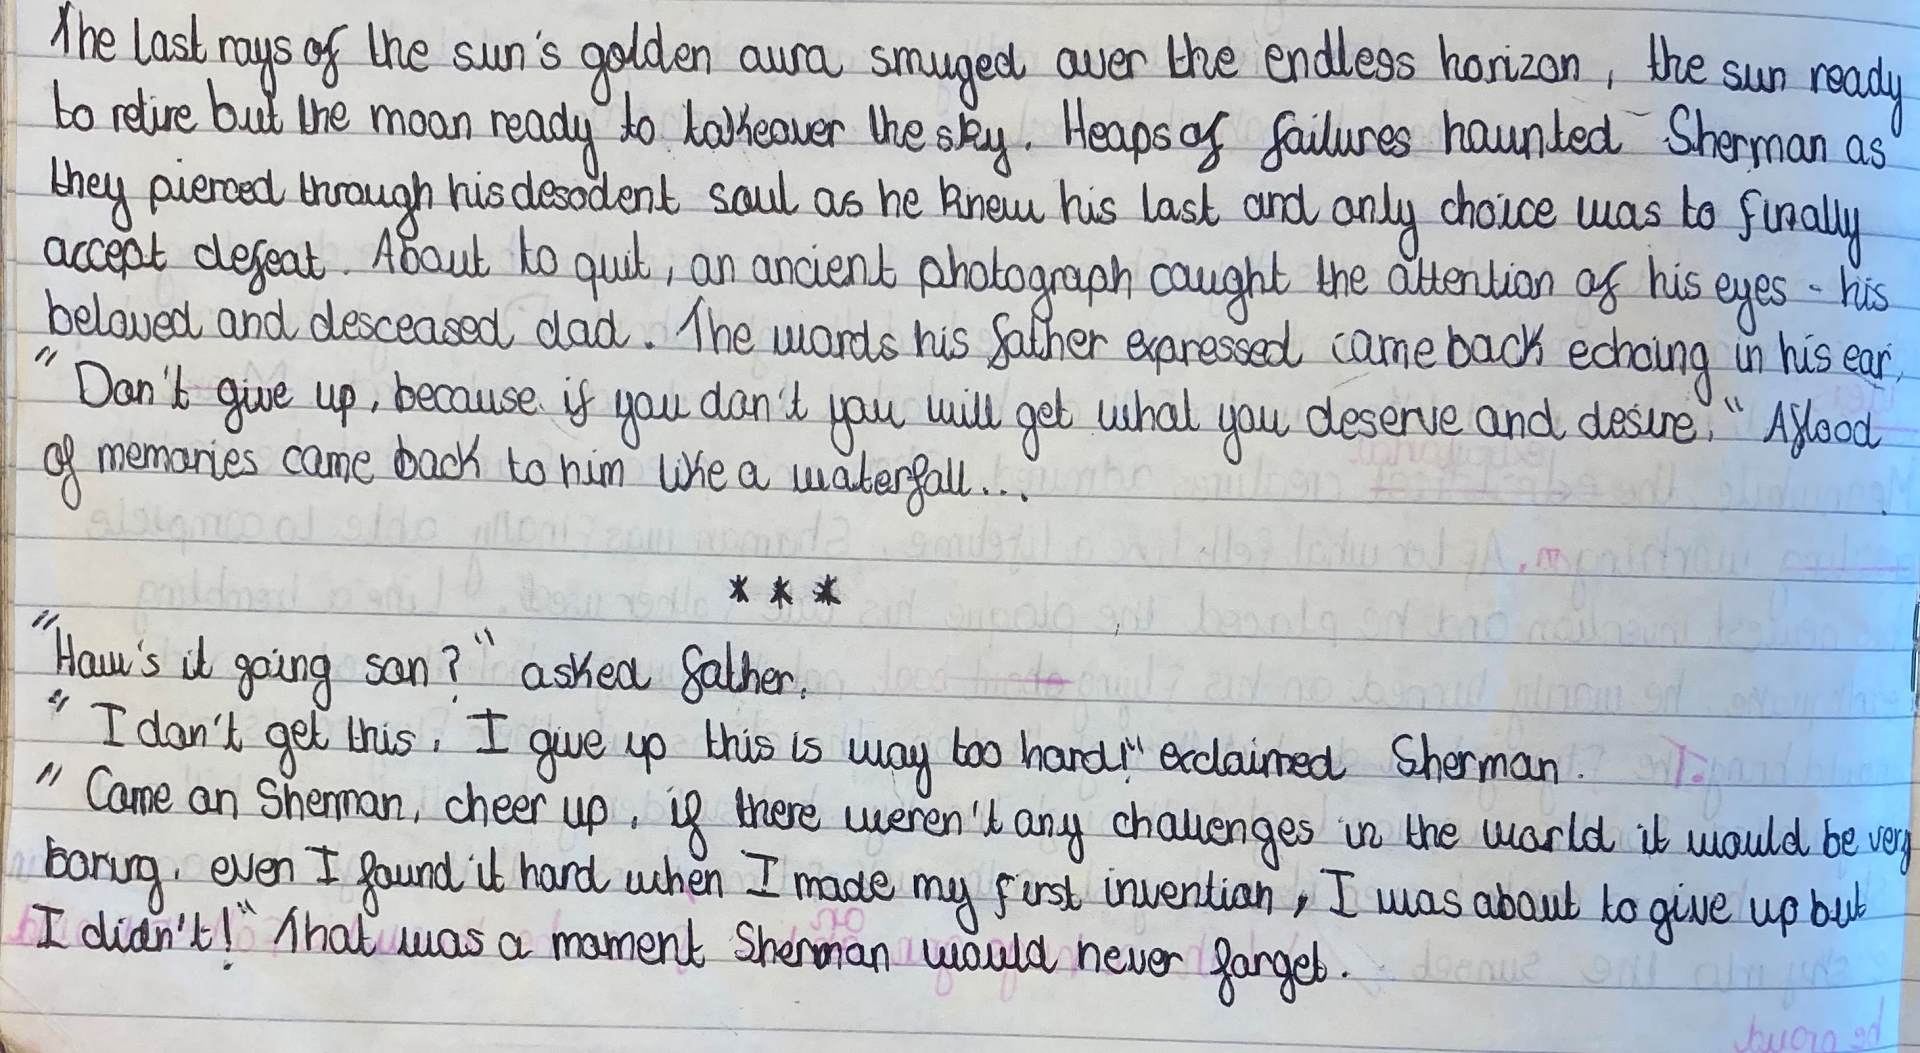 The last rays of the sun's golden aura smuged over the endless horizon, the sun ready
to retire but the moon ready to takeover the sky. Heaps of failures haunted Sherman as
they pierced through his desodent soul as he knew his last and only choice was to finally
accept defeat. About to quit, an ancient photograph caught the attention of his eyes - his
beloved and desceased dad. The words his father expressed came back echoing in his ear,
"Don't give up, because if you don't you will get what you deserve and desire." A flood
of memories came back to him like a waterfall...
* * *
"How's it going son?" asked father.
"I don't get this, I give up this is way too hard!" exclaimed Sherman.
"Come on Sherman, cheer up, if there weren't any challenges in the world it would be very
boring, even I found it hard when I made my first invention, I was about to give up but
I didn't!" That was a moment Sherman would never forget.